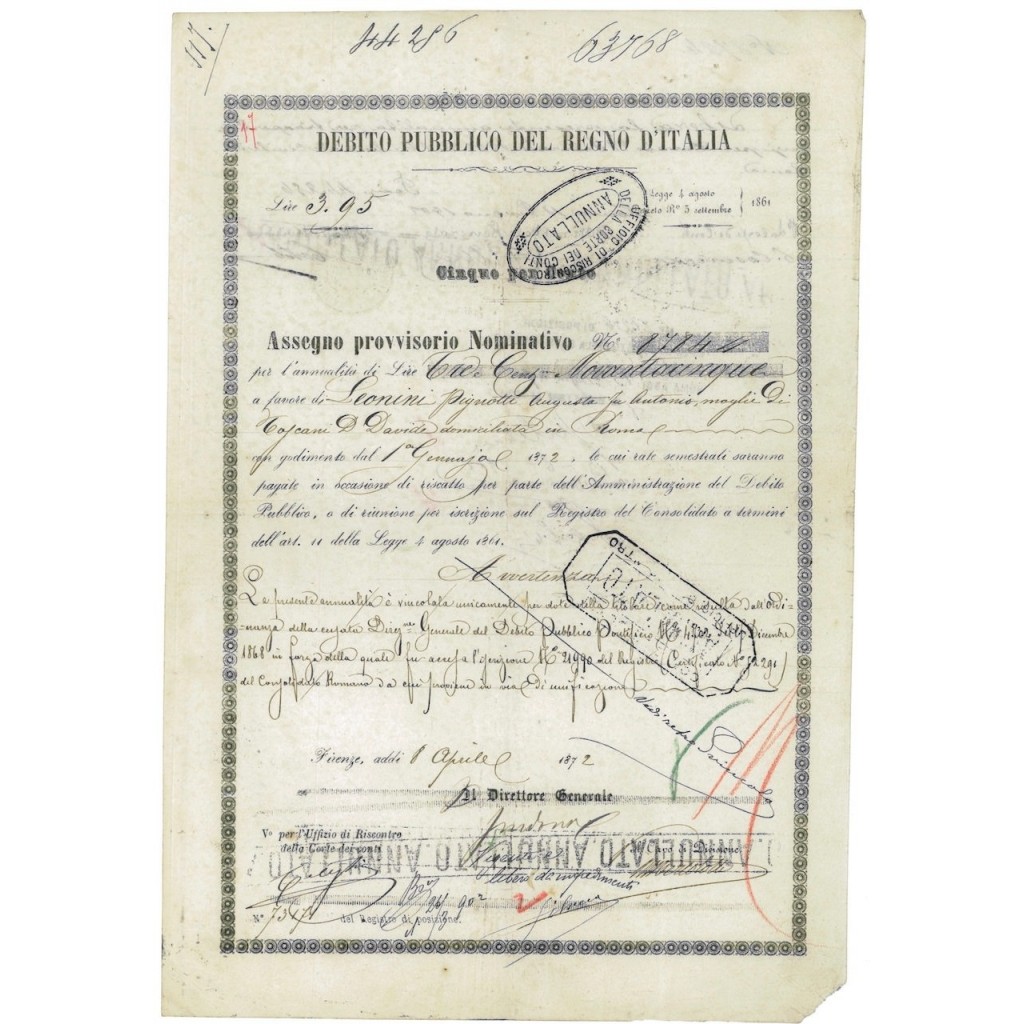 117.
44286
63768
17
DEBITO PUBBLICO DEL REGNO D'ITALIA
Lire 3.95
Legge 4 agosto
Rº 5 settembre
1861
UFFICIO DI RISCONTRO
DELLA CORTE DEI CONTI
ANNULLATO
Cinque
Assegno provvisorio Nominativo Nº
per l'annualità di Lire Tre Cent. Novantacinque
a favore di Leonini Pignotti Augusta fu Antonio, moglie di
Toscani D Davide domiciliata in Roma
con godimento dal 1º Gennajo 1872, le cui rate semestrali saranno
pagate in occasione di riscatto per parte dell'Amministrazione del Debito
Pubblico, o di riunione per iscrizione sul Registro del Consolidato a termini
dell'art. 11 della Legge 4 agosto 1861.
Avvertenza
La presente annualità è vincolata unicamente per dote della titolare come risulta dall'Ordi-
nanza della cessata Direzne Generale del Debito Pubblico Pontificio Dicembre
1868 in forza della quale fu accesa l'iscrizione Nº 21990 del Registro Certificato Nº
del Consolidato Romano da cui proviene in via di unificazione
Firenze, addì 1 Aprile 1872
Il Direttore Generale
Vº per l'Uffizio di Riscontro
della Corte dei conti
Il Capo di Divisione
ANNULLATO.ANNULLATO.ANNULLATO
libero da impedimenti
Nº
del Registro di posizione.
2